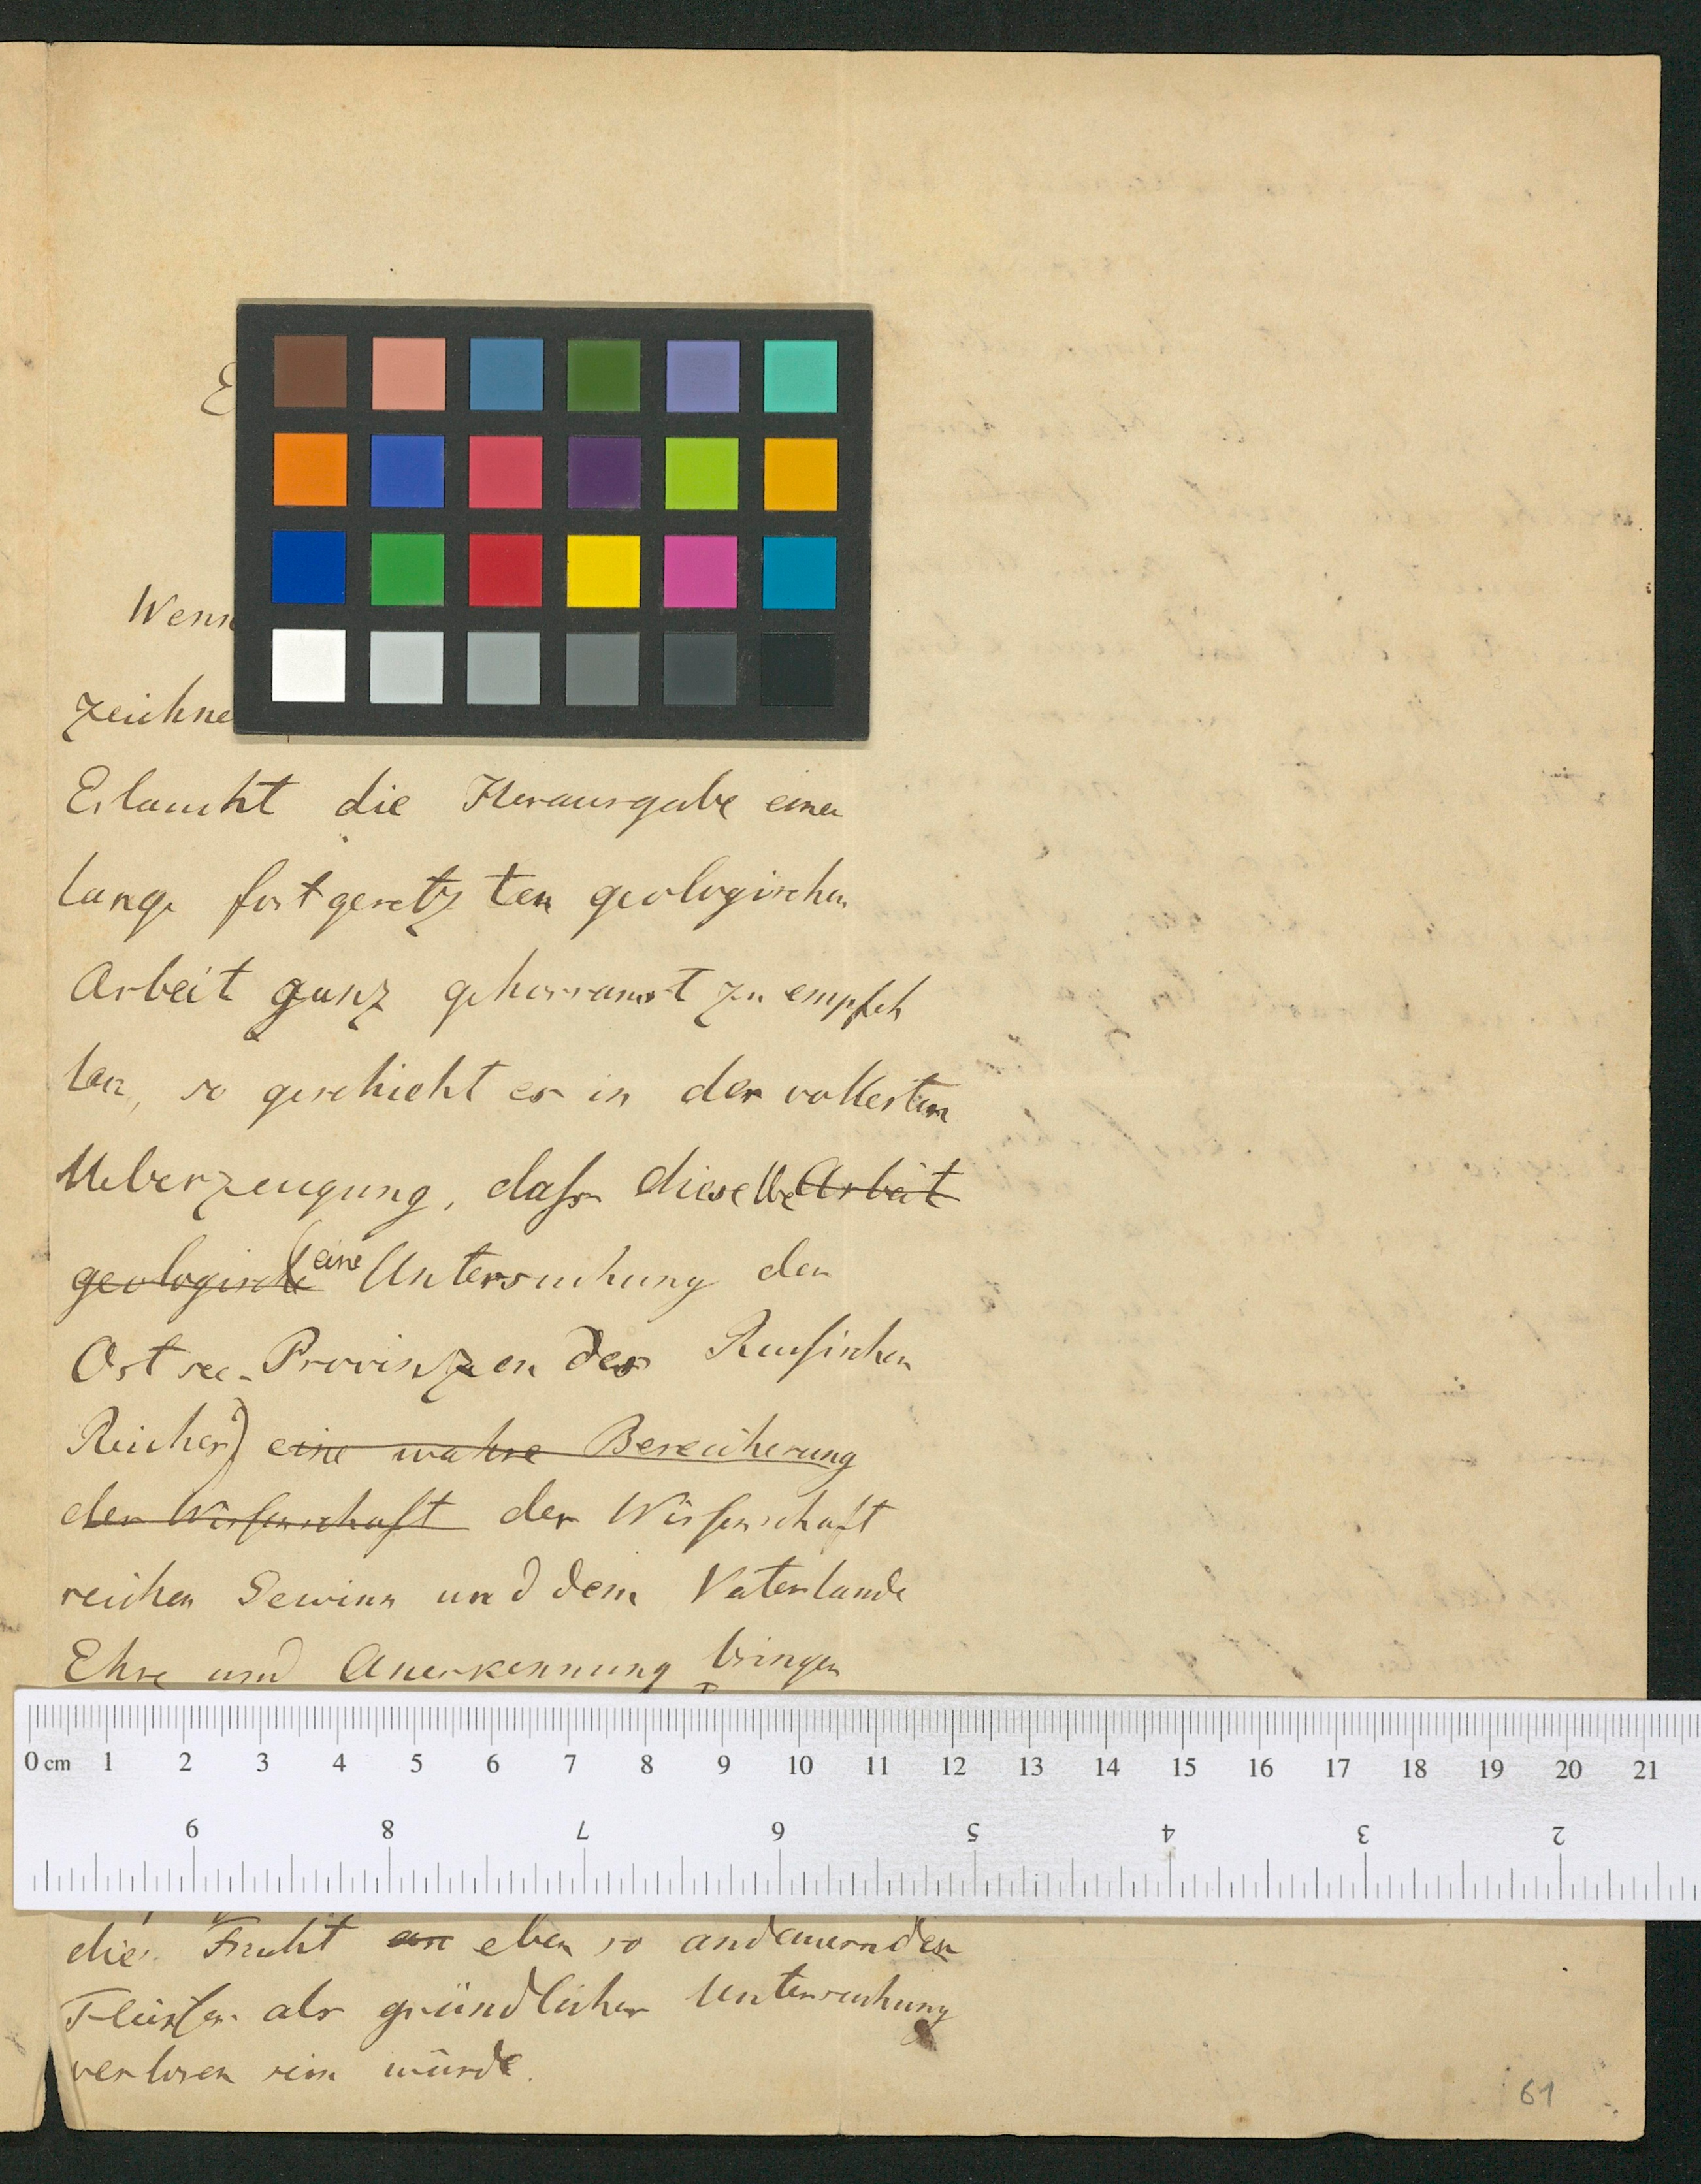 E
Wenn
zeichne
Erlaucht die Herausgabe einer
lange fortgesetzten geologischen
Arbeit ganz gehorsamst zu empfeh
len, so geschieht es in der vollesten
Ueberzeugung, dass dieselbe Arbeit
geologische (eine Untersuchung der
Ostsee-Provinzen des Russischen
Reiches) eine wahre Bereicherung
der Wissenschaft der Wissenschaft
reichen Gewinn und dem Vaterlande
Ehre und Anerkennung bringen
0 cm 1 2 3 4 5 6 7 8 9 10 11 12 13 14 15 16 17 18 19 20 21
9 8 7 6 5 4 3 2
die Frucht eben so andauernden
Fleisses als gründlicher Untersuchung
verloren sein würde.
61